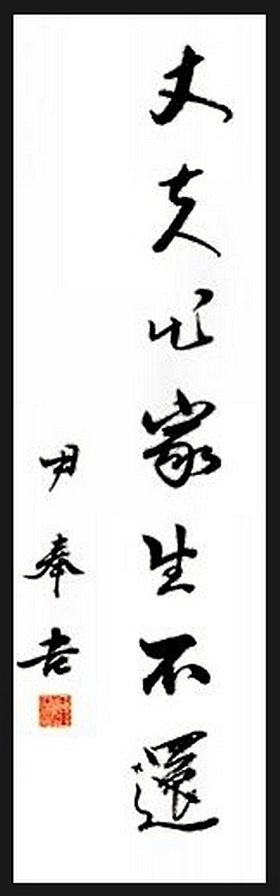 丈夫出家生不還
尹奉吉